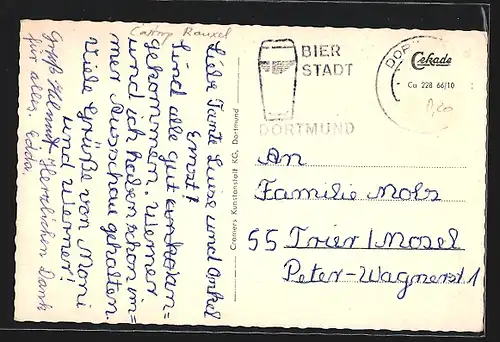 Castrop Rauxel
Liebe Tante Luise und Onkel
Ernst!
Sind alle gut ankom an=
gekommen. Werner
und ich haben schon im=
mer Ausschau gehalten.
Viele Grüße von Moni
und Werner!
Gruß Helmut. Herzlichen Dank
für alles. Edda
Cramers Kunstanstalt KG, Dortmund
BIER
STADT
DORTMUND
DOR
Cekade
Ca 228 66/10
An
Familie Molz
55 Trier/Mosel
Peter-Wagnerst 1